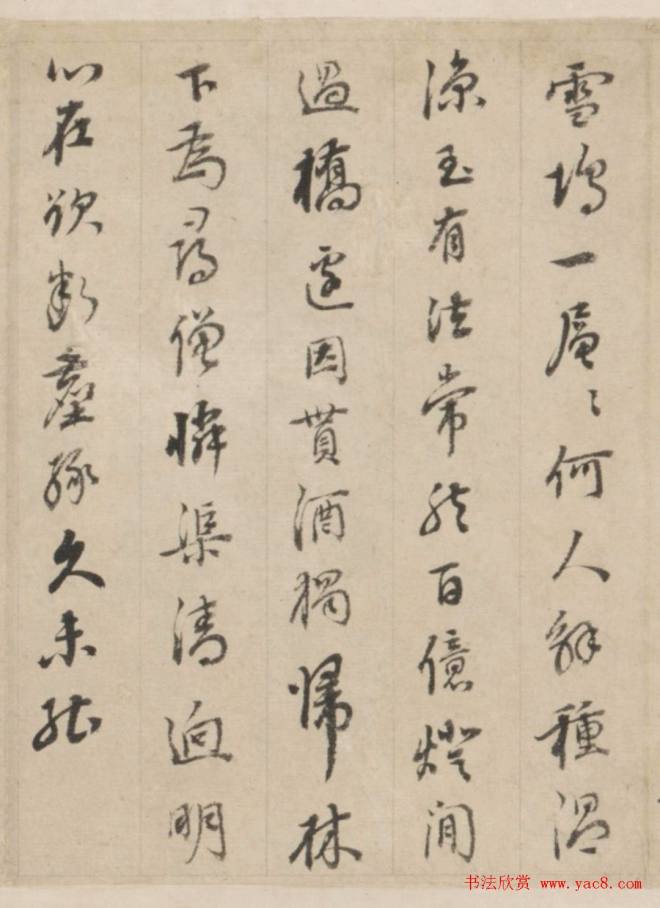 雪塢一層〻何人解種溫
涼玉有法常然百億燈閒
過橋邊因貰酒獨歸林
下為尋僧憐渠清迥明
心在欲斷塵緣久未能
书法欣赏 www.yac8.com